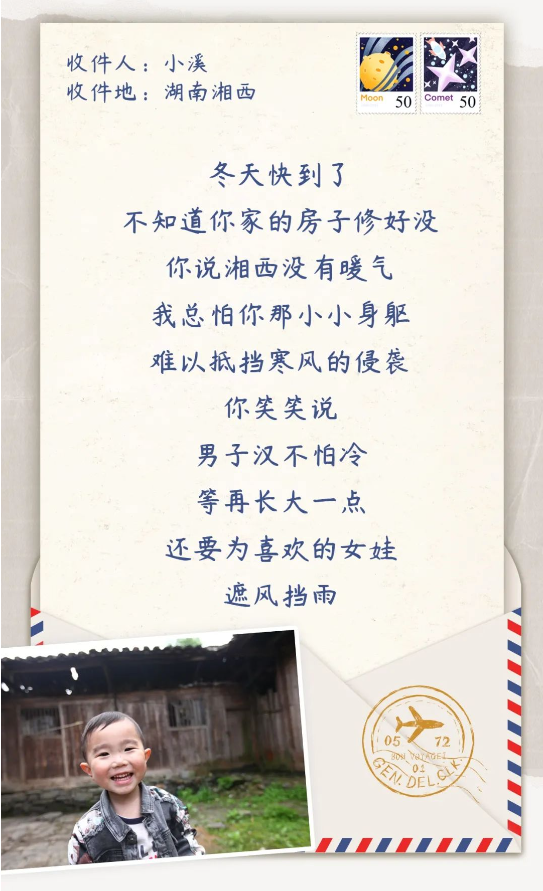 收件人：小溪
收件地：湖南湘西
Moon 50
Comet 50
冬天快到了
不知道你家的房子修好没
你说湘西没有暖气
我总怕你那小小身躯
难以抵挡寒风的侵袭
你笑笑说
男子汉不怕冷
等再长大一点
还要为喜欢的女娃
遮风挡雨
05 72
BON VOYAGE!
01
GEN. DEL. CLK.